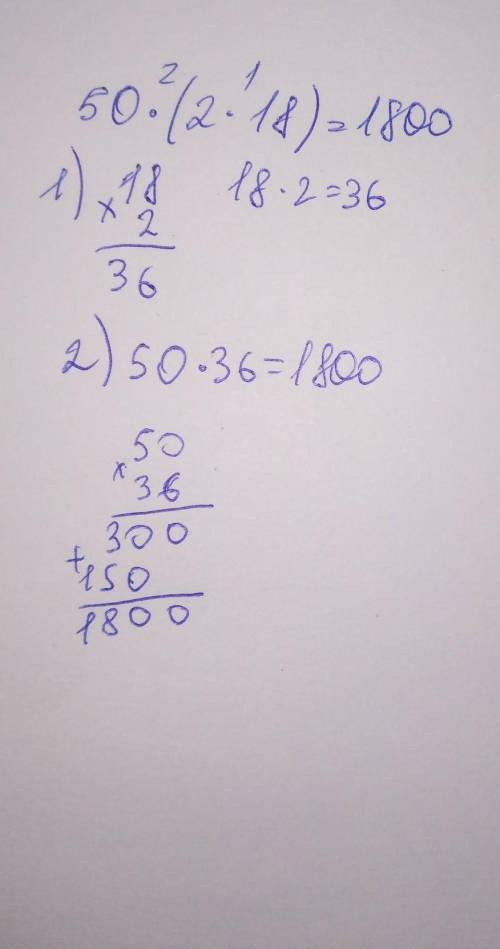 2 1
50·(2·18)=1800
1) 18 18·2=36
× 2
36
2) 50·36=1800
50
× 36
300
+ 150
1800